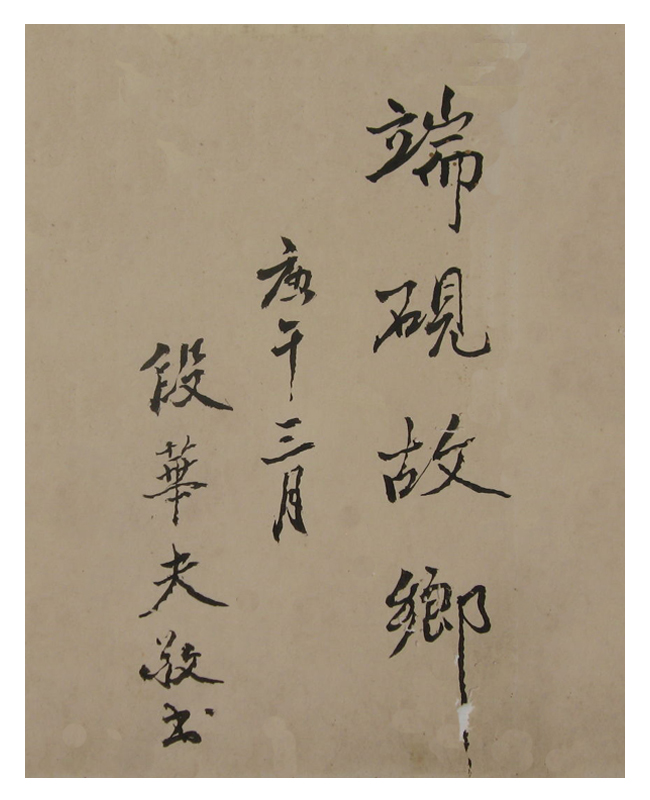 端硯故鄉
庚午三月
段華夫敬書